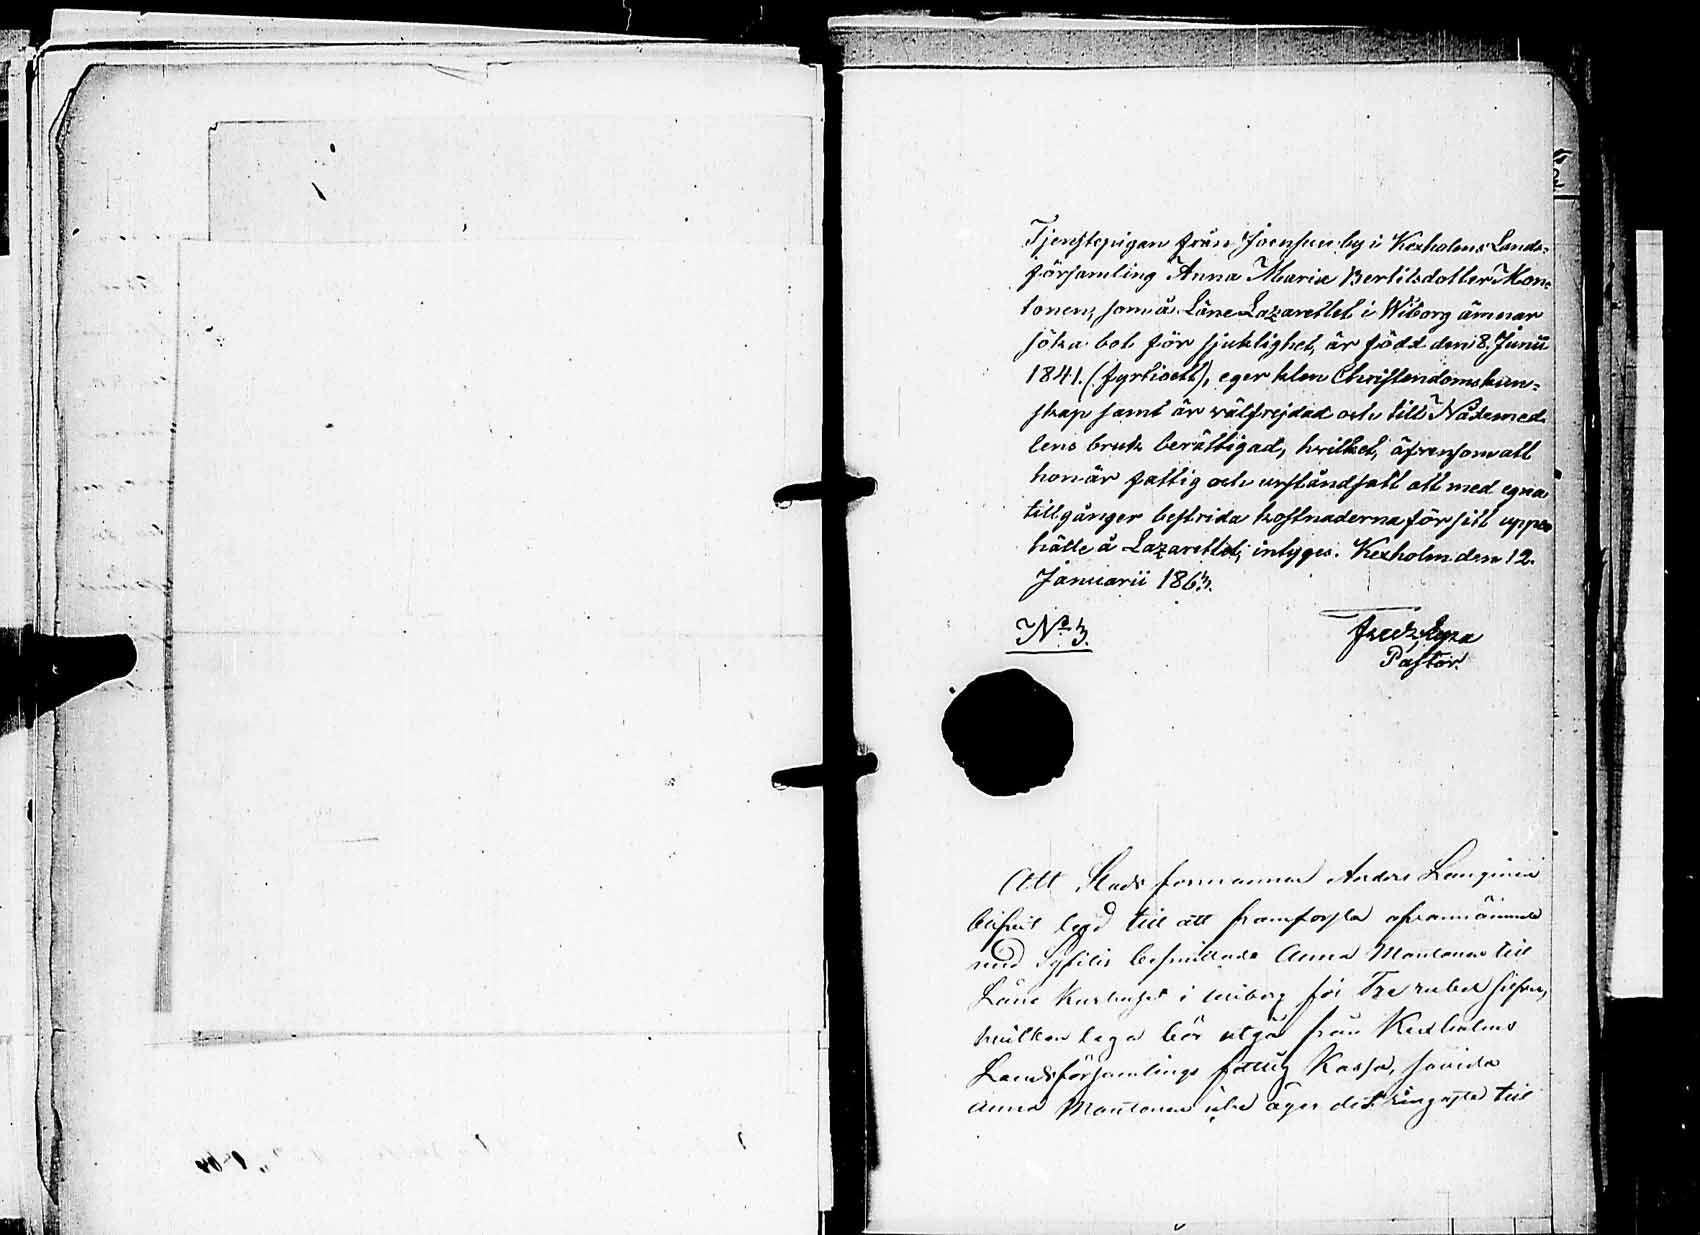 Tjenstepigan från Joensuu by i Kexholms Lands-
församling Anna Maria Bertilsdotter Mon-
tonen, som å Läne Lazarettet i Wiborg ämnar
söka bot för sjuklighet, är född den 8. Junii
1841. (fyrtioett), eger klen Christendomskun-
skap samt är välfrejdad och till Nådemed-
lens bruk berättigad, hvilket, äfvensom att
hon är fattig och urståndsatt att med egna
tillgånger bestrida kostnaderna för sitt uppe-
hälle å Lazarettet, intyges. Kexholm den 12.
Januarii 1863.
No 3.
Pastor.
Att Stads formannen Anders
blifvit legd till att framforsla ofvannämnde
med Syfilis besmittade Anna Montonen till
Läns Kurhuset i Wiborg för Tre rubel silfver,
hvilken lega bör utgå från Kexholms
Landsförsamlings fattig Kassa, såvida
Anna Montonen icke äger det ringaste till